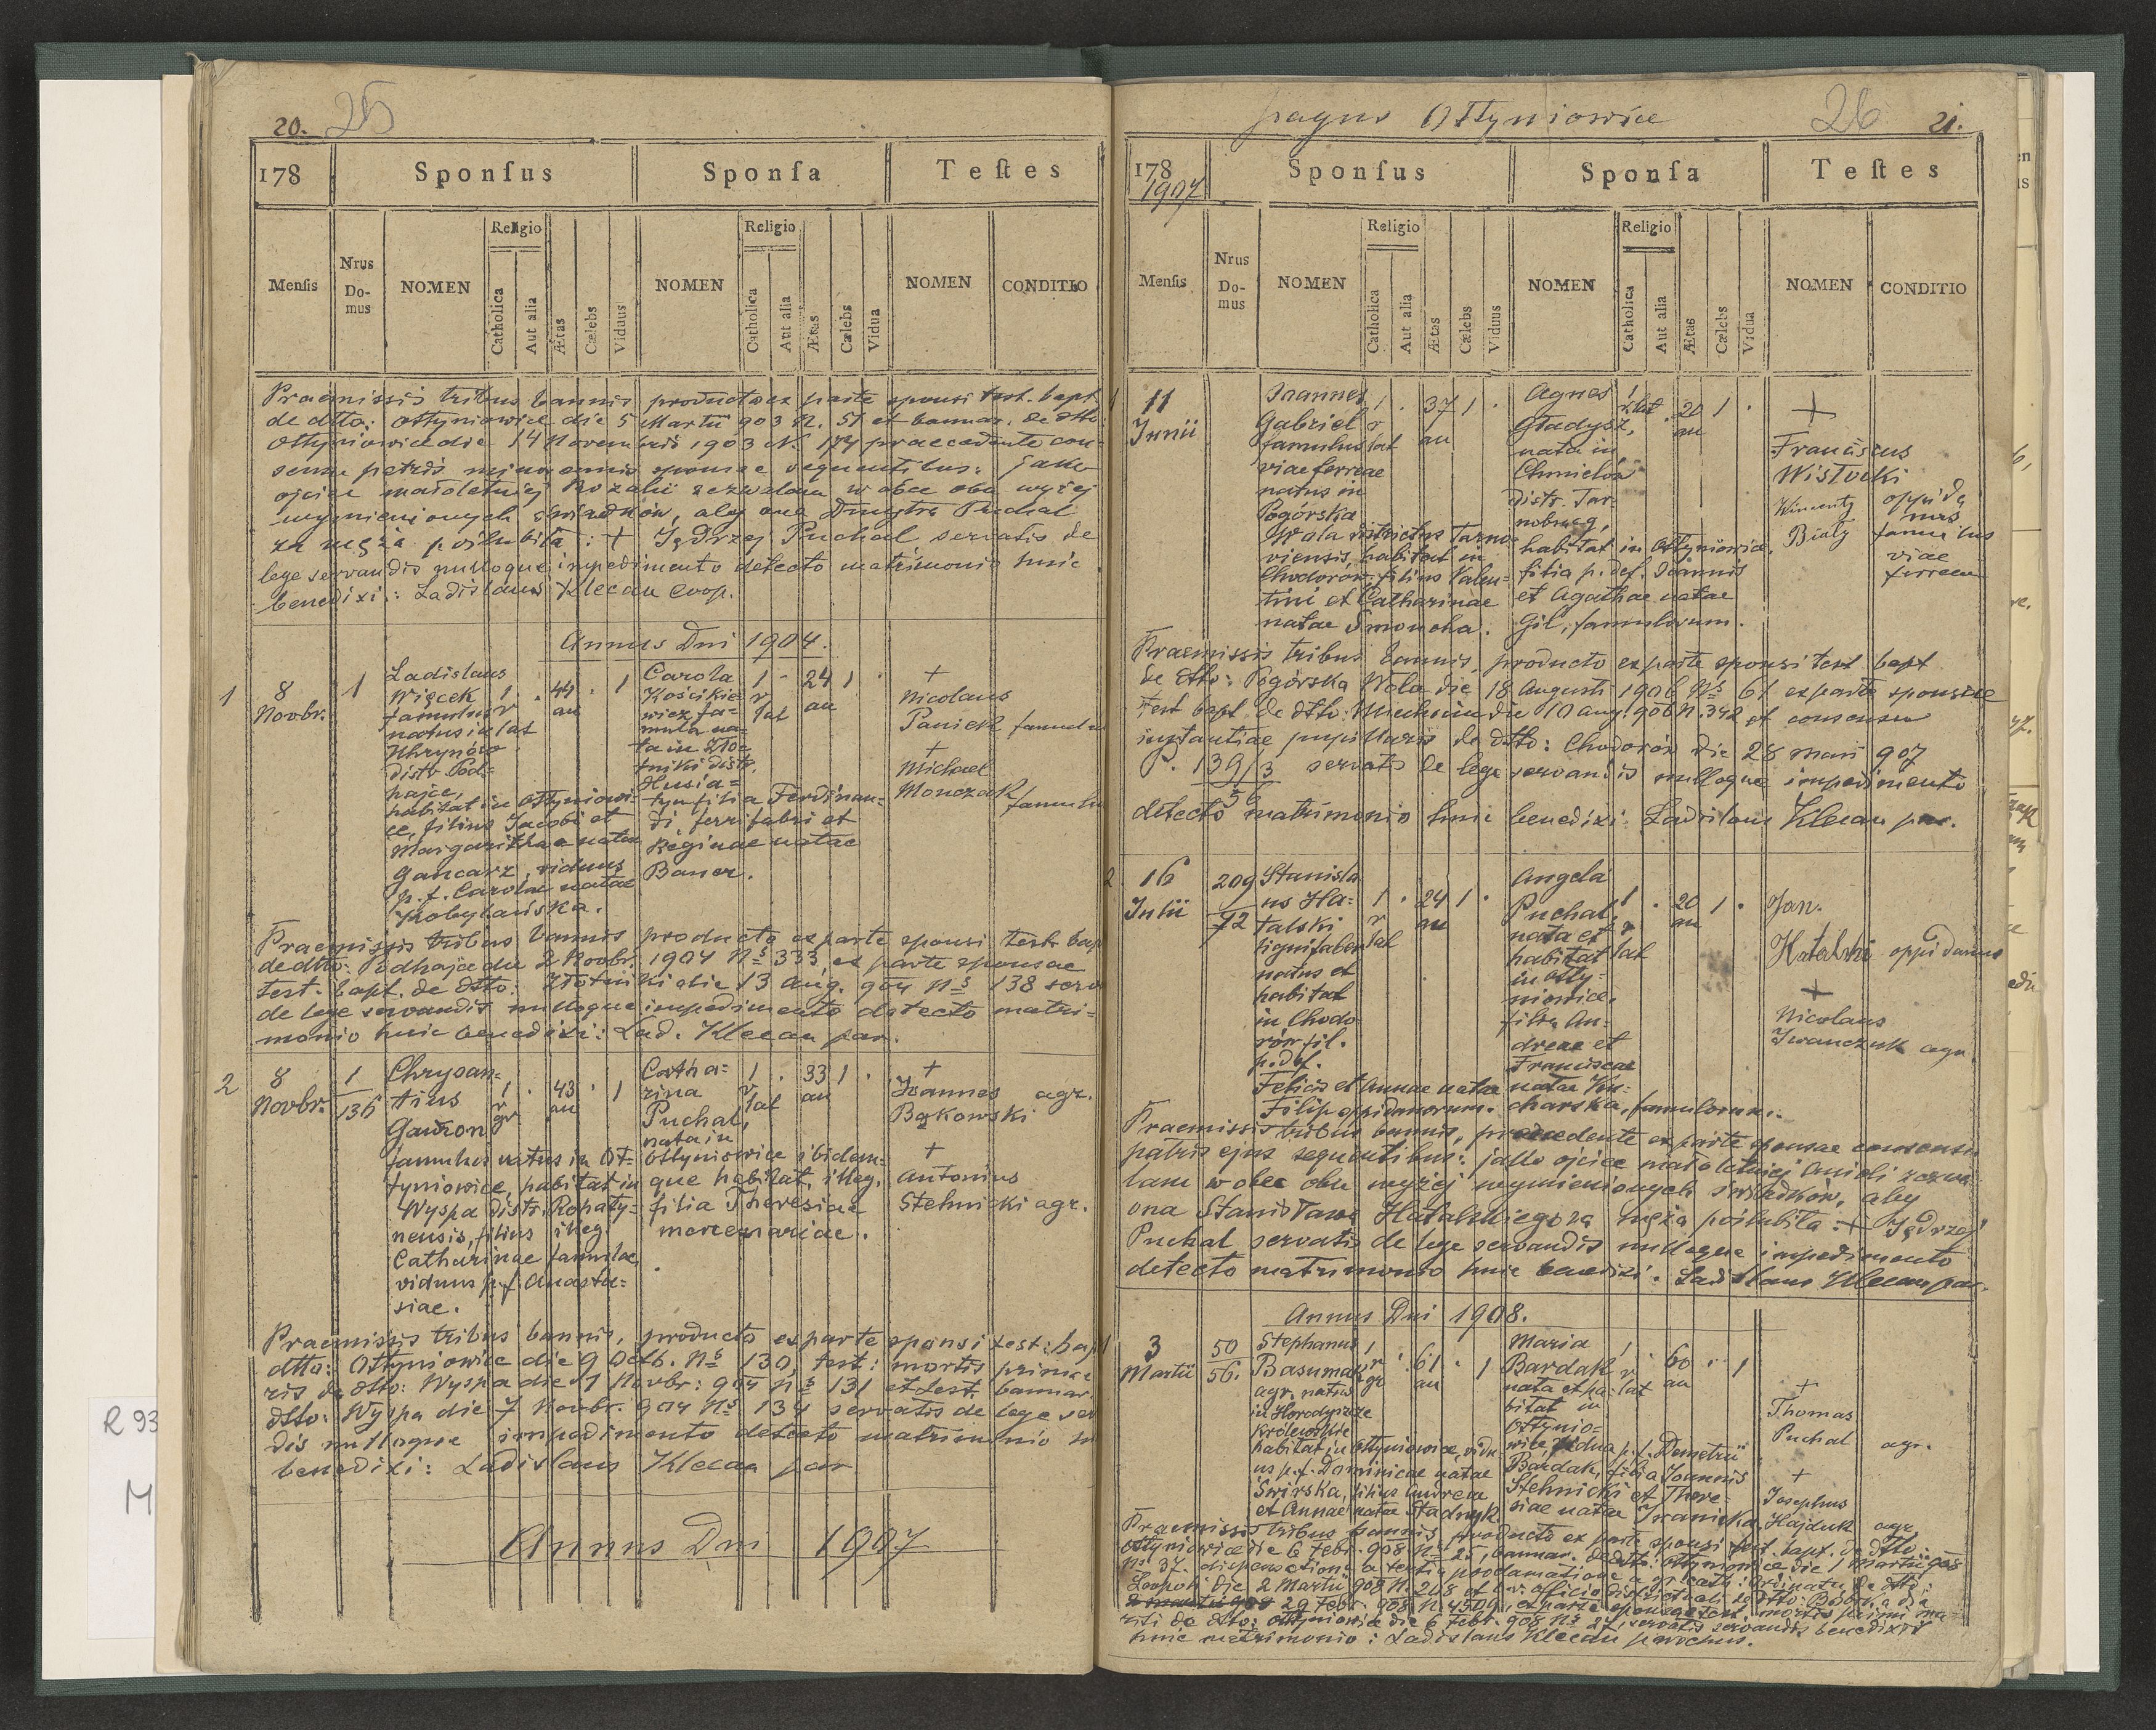 20. 25
178 Sponsus Sponsa Testes
Mensis Nrus Domus NOMEN Religio Catholica Aut alia Ætas Cælebs Viduus NOMEN Religio Catholica Aut alia Ætas Cælebs Vidua NOMEN CONDITIO
Praemissis tribus bannis producto ex parte sponsi test. bapt.
de dtto: Ottyniowice die 5 Martii 903 N. 51 et bannar. de dtto
Ottyniowice die 14 Novembris 1903 N. 174 praecedente con-
sensu patris minorennis sponsae sequentibus: jako
ojciec małoletniej Rozalii zezwalam w obec obu wyżej
wymienionych świadków, aby ona Dmytra Puchal
za męża poślubiła: + Jędrzej Puchal servatis de
lege servandis nulloque impedimento detecto matrimonio huic
benedixi: Ladislaus Klecan coop.
Annus Dni 1904.
1 8 Novbr. 1
Ladislaus
Więcek
famulus
natus in
Uhrynów
distr. Pod-
hajce,
habitat in Ottyniowi-
ce, filius Jacobi et
Margarithae natae
Gancarz, viduus
p. f. Carolae natae
Kobylańska.
1 rlat 44 an 1
Carola
Kościkie-
wicz fa-
mula na-
ta in Zło-
tniki distr.
Husia-
tyn filia Ferdinan-
di ferrifabri et
Reginae natae
Bauer.
1 rlat 24 an 1
+
Nicolaus
Paniek famulus
+
Michael
Monczak famulus
Praemissis tribus bannis producto ex parte sponsi test. bap.
de dtto: Podhajce die 2 Novbr. 1904 Ns 333, ex parte sponsae
test. bapt. de dtto: Złotniki die 13 Aug. 904 Ns 138 serv
de lege servandis nulloque impedimento detecto matri-
monio huic benedixi: Lad. Klecan par.
2 8 Novbr. 1/136
Chrysan-
tius
Gawron
famulus natus in Ot-
tyniowice, habitat in
Wyspa distr. Rohaty-
nensis, filius illeg.
Catharinae famulae,
viduus p. f. Anasta-
siae.
1 rgr 43 an 1
Catha-
rina
Puchal,
nata in
Ottyniowice ibidem-
que habitat, illeg.
filia Theresiae
mercenariae.
1 rlat 33 an 1
+
Ioannes agr.
Bąkowski
+
Antonius
Stehnicki agr.
Praemissis tribus bannis, producto ex parte sponsi test: bap
dtto: Ottyniowice die 9 Octb. Ns 130, test: mortis primae
ris de dtto: Wyspa die 7 Novbr: 904 Ns 131 et test. bannar.
dtto: Wyspa die 7 Novbr. 904 Ns 134 servatis de lege ser
dis nulloque impedimento detecto matrimonio
benedixi: Ladislaus Klecan par
Annus Dni 1907
R 93
M
pagus Ottyniowice 26 21.
178 1907 Sponsus Sponsa Testes
Mensis Nrus Domus NOMEN Religio Catholica Aut alia Ætas Cælebs Viduus NOMEN Religio Catholica Aut alia Ætas Cælebs Vidua NOMEN CONDITIO
1 11 Junii
Ioannes
Gabriel
famulus
viae ferreae
natus in
Pogórska
Wola districtus Tarno-
viensis, habitat in
Chodorów filius Valen-
tini et Catharinae
natae Smoucha.
1 rlat 37 an 1
Agnes
Gładysz,
nata in
Chmielów
distr. Tar-
nobrzeg,
habitat in Ottyniowice,
filia p. def. Ioannis
et Agathae natae
Gil, famulorum.
1 rlat 20 an 1
+
Franciscus
Wistocki oppidanus
Wincenty
Biały famulus viae ferreae
Praemissis tribus bannis, producto ex parte sponsi test bapt
de dtto: Pogórska Wola die 18 Augusti 1906 Ns 61 ex parte sponsae
test bapt. de dtto: Miechocin die 10 Aug. 906 N. 342 et consensu
instantiae pupillaris de dtto: Chodorów die 28 Maii 907
P. 139/3 servatis de lege servandis nulloque impedimento
56
detecto matrimonio huic benedixi: Ladislaus Klecan par.
2 16 Julii 209/72
Stanisla
us Ha-
talski
lignifaber
natus et
habitat
in Chodo
rów fil.
p. def.
Felicis et Annae natae
Filip oppidanorum.
1 rlat 24 an 1
Angela
Puchal,
nata et
habitat
in Otty-
niowice,
filia An-
dreae et
Franciscae
natae Ku-
charska, famulorum.
1 rlat 20 an 1
Jan
Hatalski oppidanus
+
Nicolaus
Iwanczuk agr.
Praemissis tribus bannis, praecedente ex parte sponsae consensu
patris ejus sequentibus: jako ojciec małoletniej Anieli zezwa-
lam w obec obu wyżej wymienionych świadków, aby
ona Stanisława Hatalskiego za męża poślubiła: + Jędrzej
Puchal servatis de lege servandis nulloque impedimento
detecto matrimonio huic benedixi. Ladislaus Klecan par.
Annus Dni 1908.
1 3 Martii 50/56.
Stephanus
Basumak
agr. natus
in Horodyszcze
Królewskie
habitat in Ottyniowice, vidu-
us p. f. Dominicae natae
Świrska, filius Andreae
et Annae natae Stadnyk.
1 rgr 61 an 1
Maria
Bardak
nata et ha-
bitat in
Ottynio-
wice, vidua p. f. Demetrii
Bardak, filia Ioannis
Stehnicki et There-
siae natae Iwanicka.
1 rlat 60 an 1
+
Thomas
Puchal agr.
+
Josephus
Hajduk agr.
Praemissis tribus bannis, producto ex parte sponsi test. bapt. de dtto:
Ottyniowice die 6 Febr. 908 Ns 25, bannar. de dtto: Ottyniowice die 1 Martii 908
Ns 37. dispensatione a tertia proclamatione a gr. cath: Ordinatu de dtto:
Leopoli die 2 Martii 908 N. 208 et officio districtuali de dtto: Bóbrka die
29 Febr. 908 N. 4509, ex parte sponsae test. mortis primi ma-
riti de dtto: Ottyniowice die 6 Febr. 908 Ns 27, servatis servandis benedixi
huic matrimonio: Ladislaus Klecan parochus.